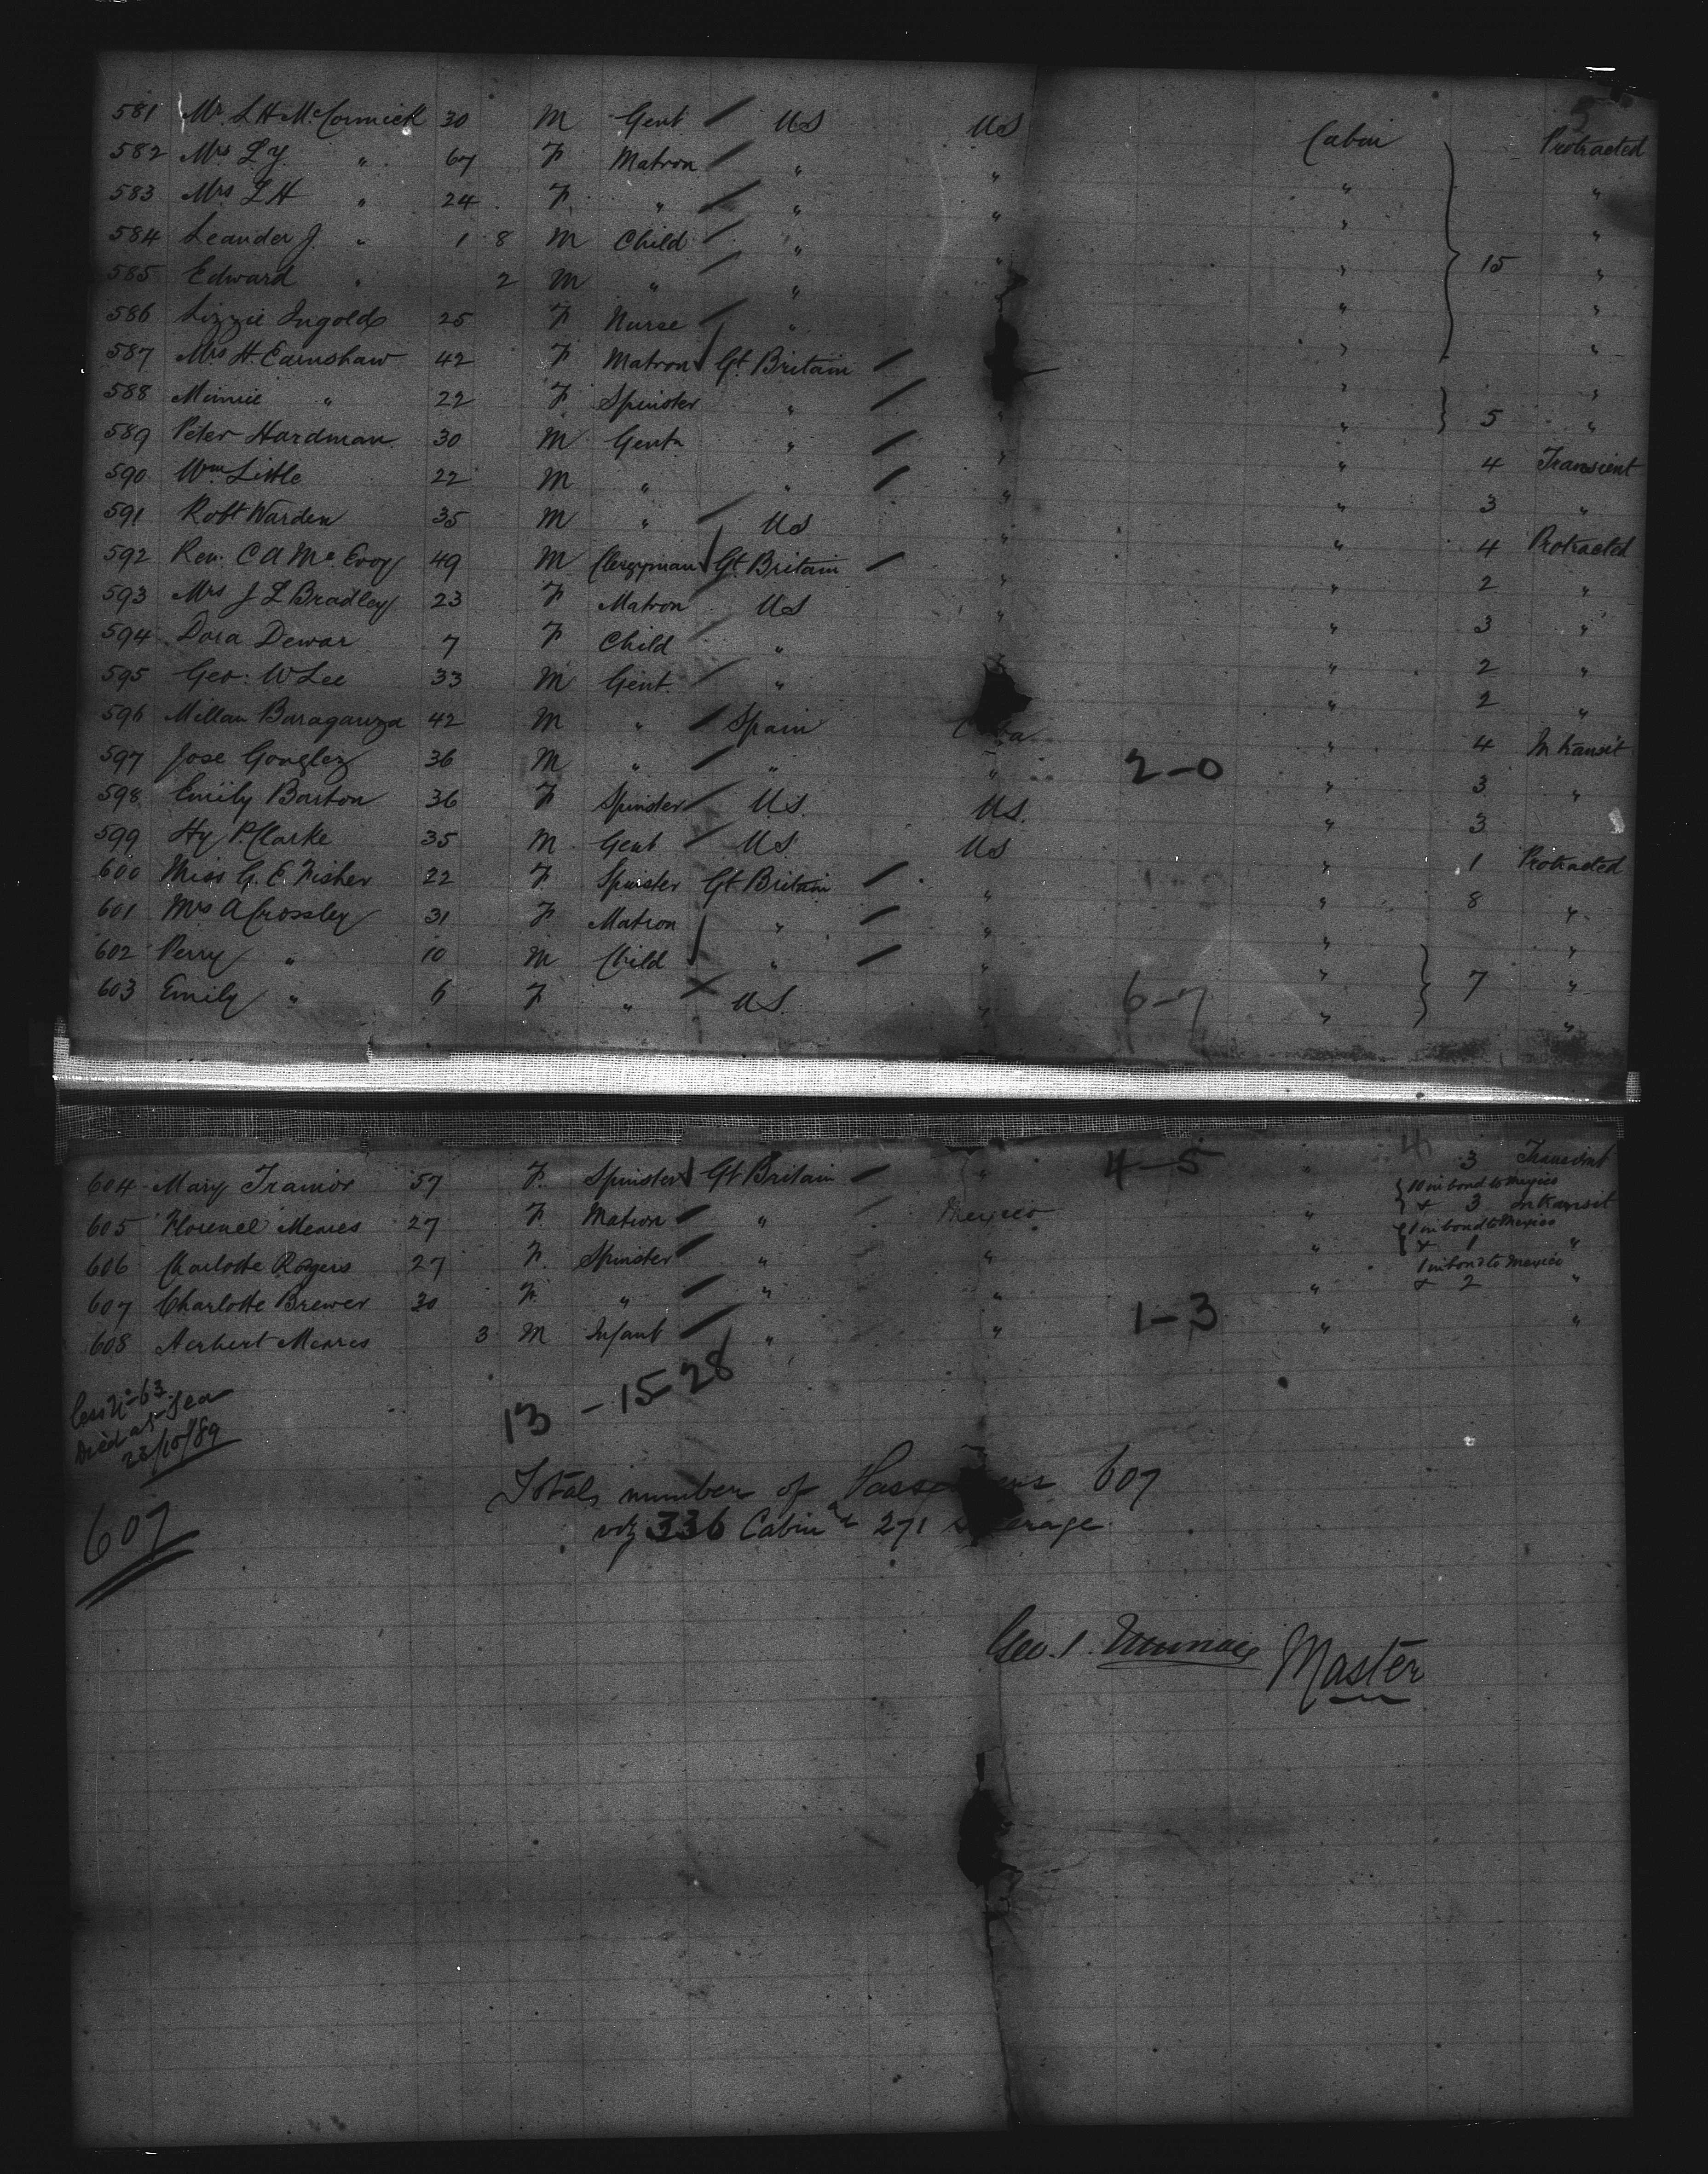 581 Mr. L H McCormick 30 M Gent U S U S Cabin Protracted
582 Mrs L J. " 67 F Matron " " " "
583 Mrs L H " 24 F. " " " " "
584 Leander J. " 1 8 M Child " " " "
585 Edward " 2 M " " " " 15 "
586 Lizzie Ingold 25 F Nurse " " " "
587 Mrs H. Earnshaw 42 F Matron Gt Britain " "
588 Minnie " 22 F. Spinster " " " 5 "
589 Peter Hardman 30 M Gentn " " " 4 Transient
590 Wm Little 22 M " " " " 3 "
591 Robt Warden 35 M " U S " " 4 Protracted
592 Rev. C A McEvoy 49 M Clergyman Gt Britain " " 2 "
593 Mrs J L Bradley 23 F Matron U S " " 3 "
594 Dora Dewar 7 F Child " " 2 "
595 Geo: W Lee 33 M Gent. " " 2 "
596 Millan Baraganza 42 M " Spain " 4 In transit
597 Jose Gonglez 36 M " " " 2-0 " 3 "
598 Emily Barton 36 F Spinster U.S. U.S. " 3
599 Hy P. Clarke 35 M Gent U S U S " 1 Protracted
600 Miss G. E. Fisher 22 F. Spinster Gt Britain " " 8 "
601 Mrs A Crossley 31 F Matron " " " "
602 Perry " 10 M Child " " " 7 "
603 Emily " 6 F " U S. " 6-7 " "
604 Mary Trainor 57 F. Spinster Gt Britain " 4-5 " 3 Transient
605 Florence Meares 27 F. Matron " Mexico " 10 in bond to Mexico & 3 In transit
606 Charlotte Rogers 27 F. Spinster " " " 1 in bond to Mexico & 1 "
607 Charlotte Brewer 30 F. " " " " 1 in bond to Mexico & 2 "
608 Herbert Meares 3 M Infant " " 1-3 " "
13 - 15 28
less No 63
Died at Sea
23/10/89
Total number of Passengers 607
viz 336 Cabin & 271 Steerage
607
Geo. Master